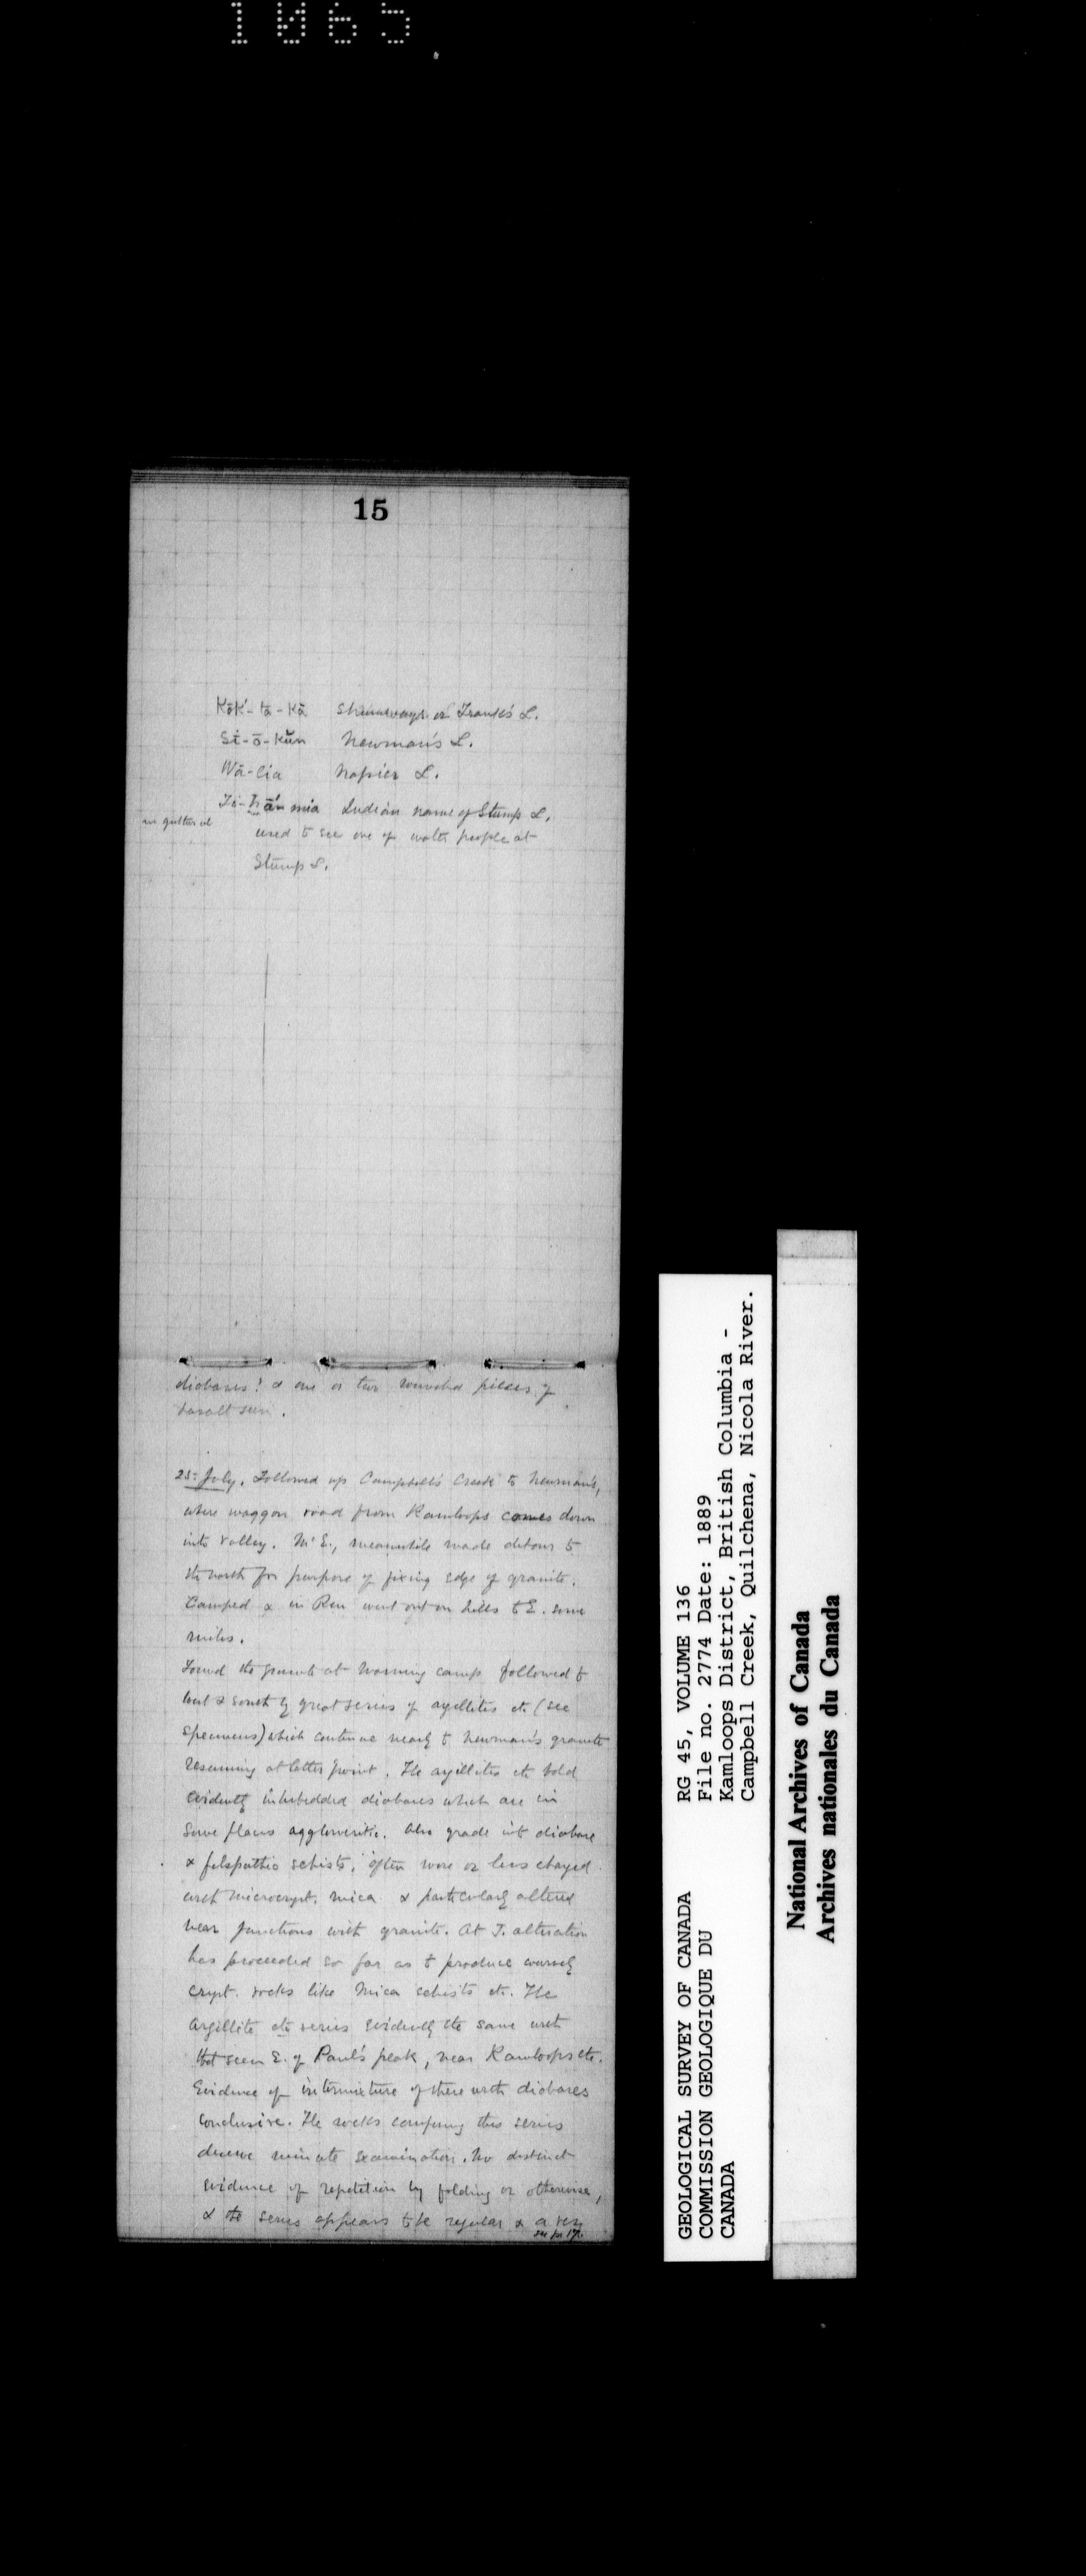 1065
15
Kōk'-ta-Kā Shumways or Trank's L.
Si-ō-Kŭn Newman's L.
Wā-lia Napier L.
mia Indian name of Stump L.
guttural
used to see one of water people at
Stump L.
diabases! & one or two rounded pieces of
basalt seen.
25 July. Followed up Campbell's Creek to Newman's,
where waggon road from Kamloops comes down
into valley. McE., meanwhile made detour to
the north for purpose of fixing edge of granite.
Camped & in Rain went out on hills to E. some
miles.
Found the granite at morning camp followed to
west & south by great series of argillites etc (see
specimens) which continue nearly to Newman's granite
resuming at latter point. The argillites etc hold
evidently interbedded diabases which are in
some places agglomeritic. Also grade into diabase
& felspathic schists, often more or less charged
with microcryst. mica & particularly altered
near junctions with granite. At J. alteration
has proceeded so far as to produce coarsely
cryst. rocks like Mica schists etc. The
Argillite etc series evidently the same with
that seen E. of Paul's peak, near Kamloops etc.
Evidence of intermixture of these with diabases
conclusive. The rocks composing this series
deserve minute examination. No distinct
evidence of repetition by folding or otherwise,
& the series appears to be regular & a very
see p. 17.
GEOLOGICAL SURVEY OF CANADA
COMMISSION GEOLOGIQUE DU
CANADA
RG 45, VOLUME 136
File no. 2774 Date: 1889
Kamloops District, British Columbia -
Campbell Creek, Quilchena, Nicola River.
National Archives of Canada
Archives nationales du Canada